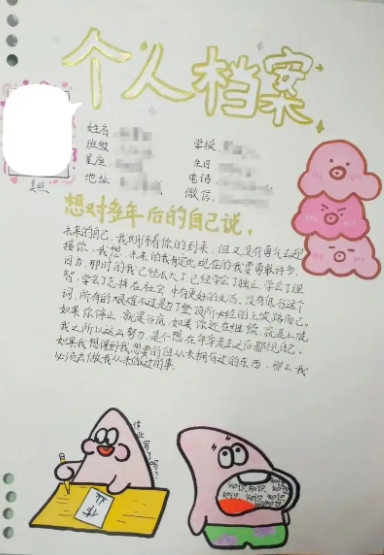 个人档案
美照
姓名
学校
班级
生日
星座
电话
地址
微信
想对多年后的自己说:
未来的自己,我期待着你的到来,但又没有勇气去迎
接你,我想,未来的我肯定比现在的我要勇敢许多,
因为,那时的我已经长大了,已经学会了独立,学会了理
智,学会了怎样在社会中有更好的生活,没有低谷这个
词,所有的艰难不过是为了登顶所必经的上坡路而已。
如果你停止,就是谷底,如果你还在继续,就是上坡,
我之所以这么努力,是不想在年华老去之后鄙视自己。
如果我想得到我想要的但从未拥有过的东西,那么我
必须去做我从未做过的事。
作业
知识 知识
知识 知识 知识
知识 知识